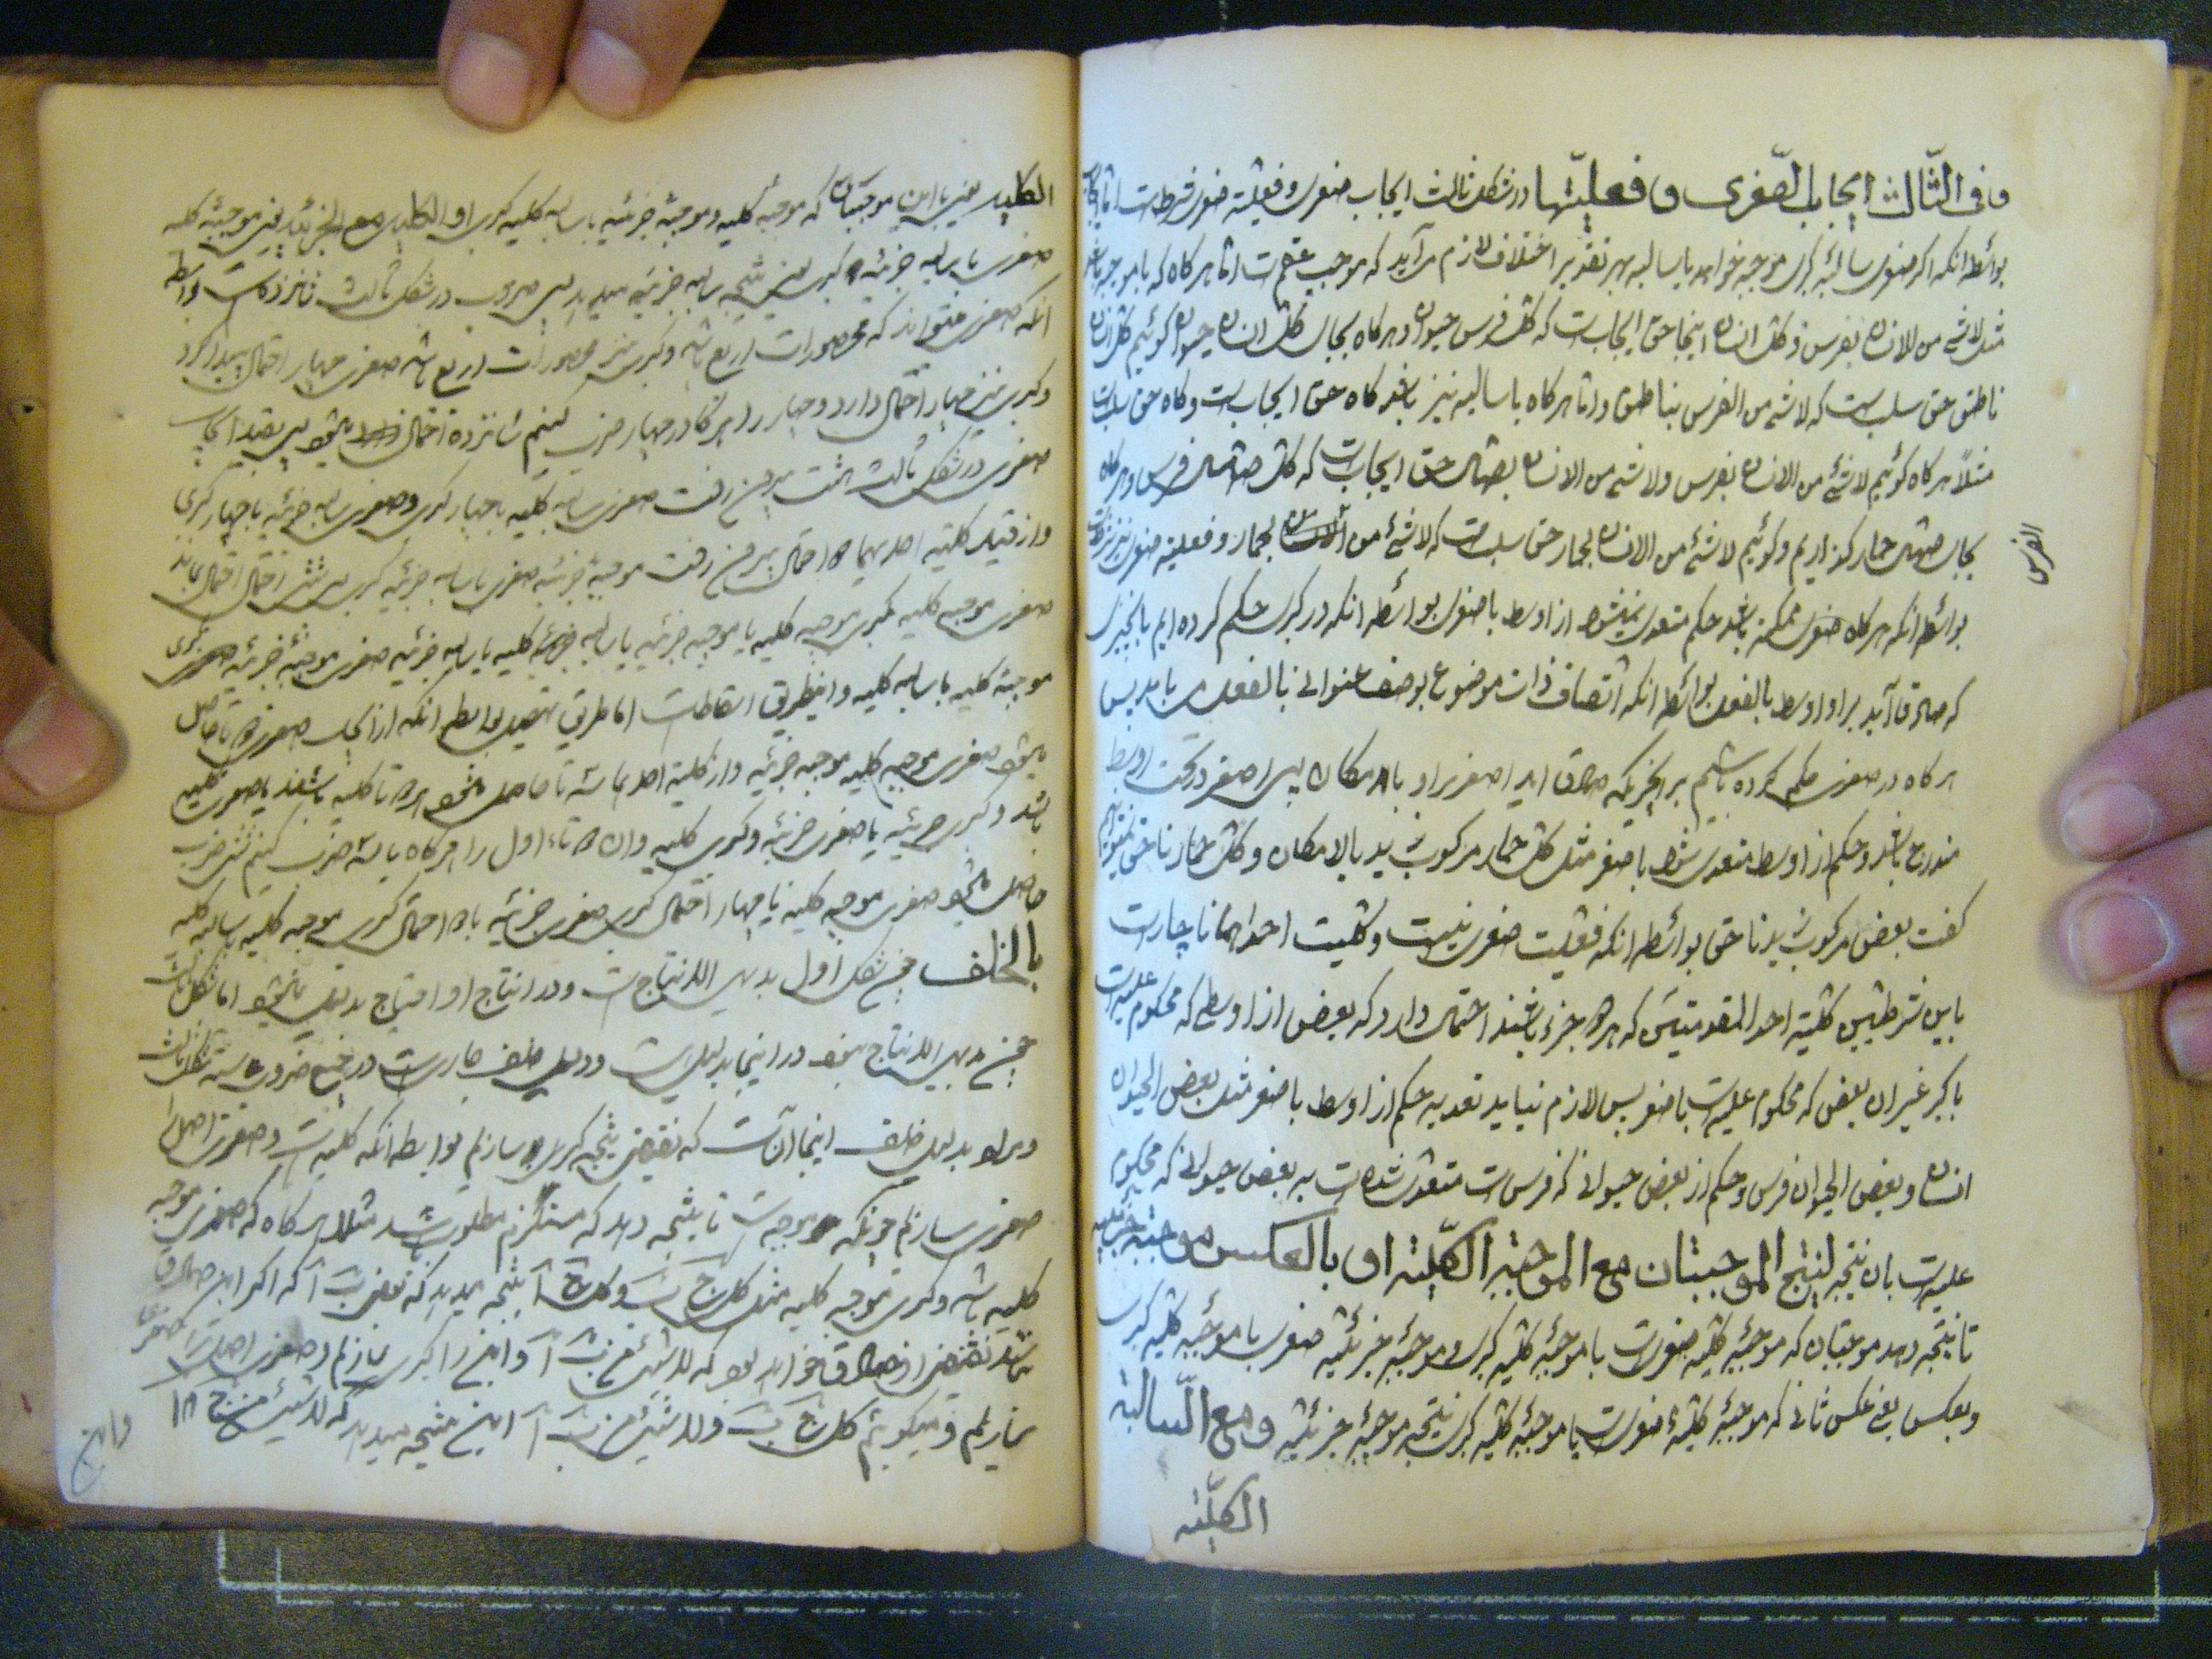 و فی الثّالث ایجاب الصّغری و فعلیّتها در شکل ثالث ایجاب صغری و فعلیّة صغری شرطست اما ایجاب
بواسطه انکه اکر صغری سالبه کبری موجبه خواهد یا سالبه بهر تقدیر اختلاف لازم می آید که موجب عقم است اما هر کاه که با موجبه باشد
مثل لا شئ من الانسان بفرس و کل انسان اینجا حق ایجابست که کل فرس حیوان و هر کاه بجای کل انسان حیوان کوئیم کل انسان
ناطق حق سلبست که لا شئ من الفرس بناطق و اما هر کاه با سالبه نیز باشد کاه حق ایجابست و کاه حق سلبست
مثلاً هر کاه کوئیم لا شئ من الانسان بفرس و لا شئ من الانسان بصهال حق ایجابست که کل صهال فرس و هر کاه
بجای صهال حمار کذاریم و کوئیم لا شئ من الانسان بحمار حق سلبست که لا شئ من بحمار و فعلیة صغری نیز شرطست
الفرس
بواسطه انکه هر کاه صغری ممکنه باشد حکم متعدی نمیشود از اوسط باصغر بواسطه انکه در کبری حکم کرده ایم بانچیزی
که صادق آید بر او اوسط بالفعل بواسطه انکه اتصاف ذات موضوع بوصف عنوانی بالفعل می باید پس
هر کاه در صغری حکم کرده باشیم بر انچیزیکه صادق اید اصغر بر او بالامکان پس اصغر در تحت اوسط
مندرج باشد و حکم از اوسط متعدی شود باصغر مثل کل حمار مرکوب زید بالامکان و کل حمار ناهق نمیتوانیم
کفت بعض مرکوب زید ناهق بواسطه انکه فعلیت صغری نیست و کلیت احدیهما ناچارست
باین شرطیین کلیة احد المقدمتین که هر دو جزء باشند احتمال دارد که بعض از اوسطی که محکوم علیه است
باکبر غیر ان بعض که محکوم علیه است باصغر پس لازم نیاید تعدیه حکم از اوسط باصغر مثل بعض الحیوان
انسان و بعض الحیوان فرس و حکم از بعض حیوانی که فرس است متعدی نشده است به بعض حیوانی که محکوم
علیه است بان نتیجه لینتج الموجبتان مع الموجبة الکلّیة او بالعکس موجبة جزئیة
تا نتیجه دهد موجبتان که موجبه کلیه صغریست با موجبه کلیه کبری و موجبه جزئیه صغری با موجبه کلیه کبری
و بعکس یعنی عکس ثانی که موجبه کلیه صغریست با موجبه کلیه کبری نتیجه موجبه جزئیه و مع السّالبة
الکلّیة
الکلیه یعنی با این موجبتان که موجبه کلیه و موجبه جزئیه با سالبه کلیه کبری او الکلیة مع الجزئیة یعنی موجبه کلیه
صغری با سالبه جزئیه کبری یعنی نتیجه سالبه جزئیه میدهد پس ضروب در شکل ثالث شانزده است بواسطه
انکه صغری میتواند که محصورات اربع باشد و کبری نیز محصورات اربع باشد صغری چهار احتمال پیدا کرد
و کبری نیز چهار احتمال دارد و چهار را هر کاه در چهار ضرب کنیم شانزده احتمال میشود پس بقید ایجاب
صغری در شکل ثالث هشت بیرون رفت صغری سالبه کلیه با چهار کبری و صغری سالبه جزئیه با چهار کبری
و از قید کلیته احدیهما دو احتمال بیرون رفت موجبه جزئیه صغری با سالبه جزئیه کبری پس شش احتمال
صغری موجبه کلیه کبری موجبه کلیه یا موجبه جزئیه یا سالبه کلیه یا سالبه جزئیه صغری موجبه جزئیه کبری
موجبه کلیه یا سالبه کلیه و اینطریق اسقاطست اما طریق تحصیل بواسطه انکه از ایجاب صغری دو تا حاصل
میشود صغری موجبه کلیه موجبه جزئیه و از کلیة احدیهما سه تا حاصل میشود هر دو تا کلیه باشند یا صغری کلیه
باشد و کبری جزئیه یا صغری جزئیه و کبری کلیه و ان دو تاء اول را هر کاه با سه ضرب کنیم شش ضرب
حاصل میشود صغری موجبه کلیه با چهار احتمال کبری صغری جزئیه با دو احتمال کبری موجبه کلیه یا سالبه کلیه
بالخلف چون شکل اول بدیهی الانتاج است و در انتاج او احتیاج بدلیل نمیشود اما شکل ثالث
چون بدیهی الانتاج نبود در اینجا بدلیل است و دلیل خلف جاریست در جمیع ضروب سته شکل ثالث
دلیل خلف اینجا آنست که نقیض نتیجه کبری سازیم بواسطه انکه کلیه است و صغری اصل را
صغری سازیم چونکه موجبه است تا نتیجه دهد که مستلزم مطلوب باشد مثلا هر کاه که صغری موجبه
کلیه باشد و کبری موجبه کلیه مثل کل ج ب و کل ج آ نتیجه میدهد که بعض ب آ که اکر این صادق
نباشد نقیض او صادق خواهد بود که لا شئ من ب آ و این را کبری سازیم و صغری اصل را صغری
سازیم و میکوئیم کل ج ب و لا شئ من ب آ این نتیجه میدهد که لا شئ من ج آ
و این